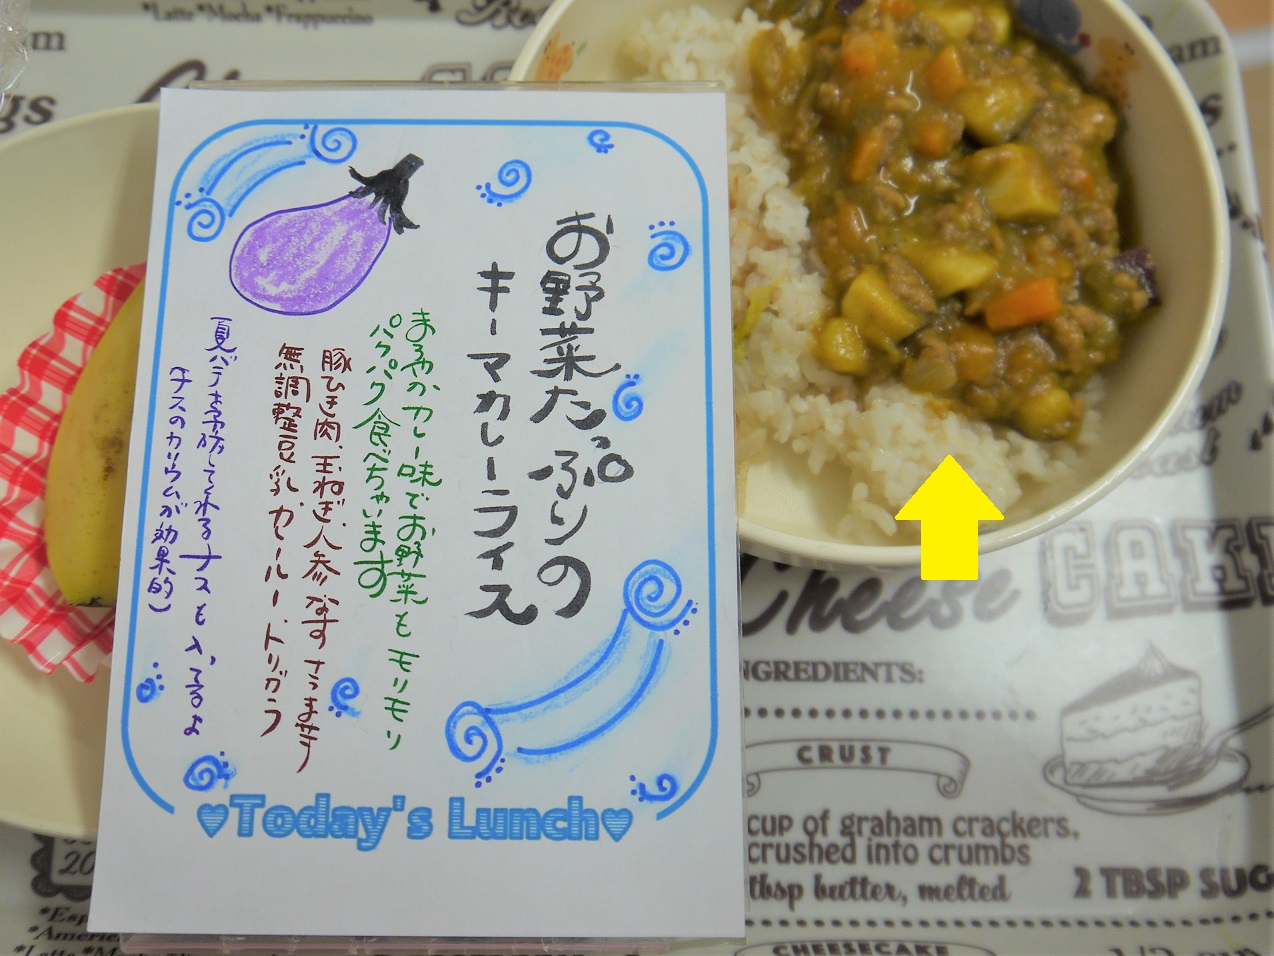 お野菜たっぷりの
キーマカレーライス
まろやかカレー味でお野菜もモリモリ
パクパク食べちゃいます
豚ひき肉、玉ねぎ、人参、なす、さつま芋
無調整豆乳、カレールー、トリガラ
夏バテ予防してくれるナスも入ってるよ
(ナスのカリウムが効果的)
♥Today's Lunch♥
*Latte *Mocha *Frappuccino
Cheese CAKE
INGREDIENTS:
CRUST
cup of graham crackers,
crushed into crumbs
tbsp butter, melted
2 TBSP SUG
CHEESECAKE